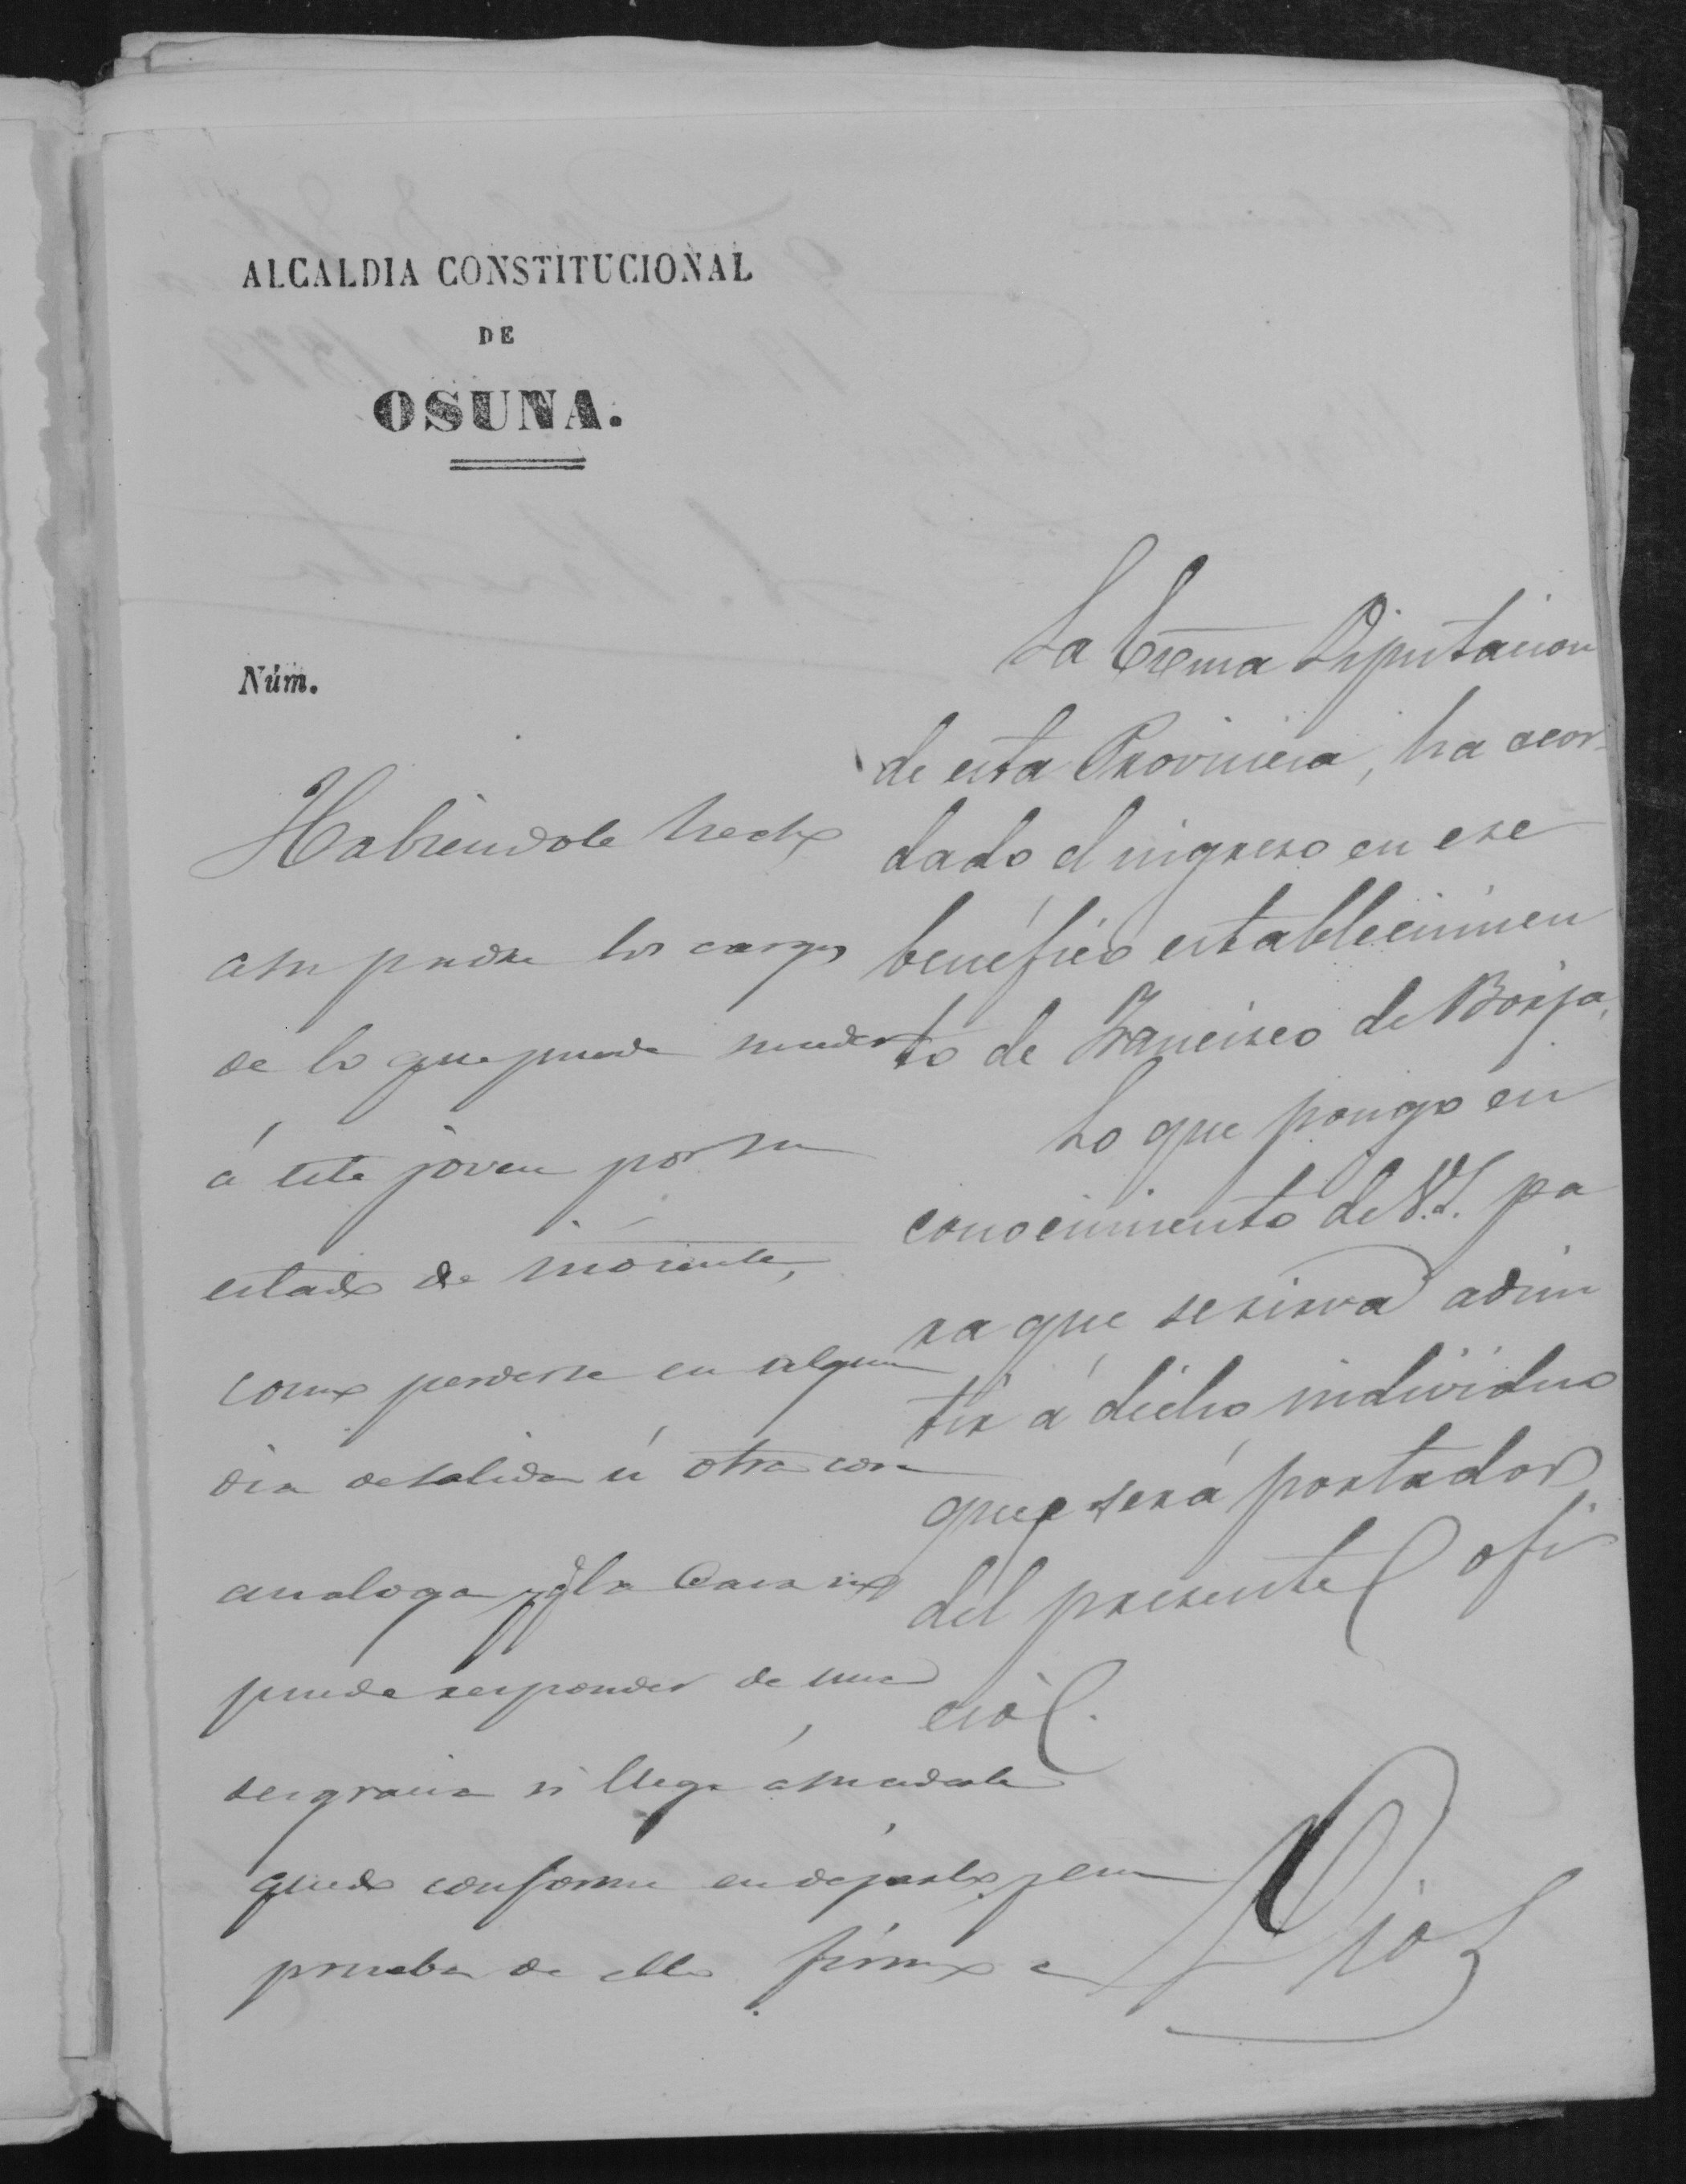 ALCALDIA CONSTITUCIONAL
DE
OSUNA.
Núm.
La Exma Diputacion
de esta Provincia, ha acor-
dado el ingreso en ese
benéfico establecimien
to de Francisco de Borja,
Lo que pongo en
conocimiento de V.S. pa
ra que se sirva admi
tir á dicho individuo
que será portador
del presente ofi
cio.
Dios
Habiendole hecho
a su padre los cargos
de lo que puede suceder
á este joven por su
estado de inocente,
como perderse en algun
dia de salida ú otra cosa
analoga y q. la Casa no
puede responder de una
desgracia si llega á sucederle
queda conforme en dejarlo y en
prueba de ello firmo